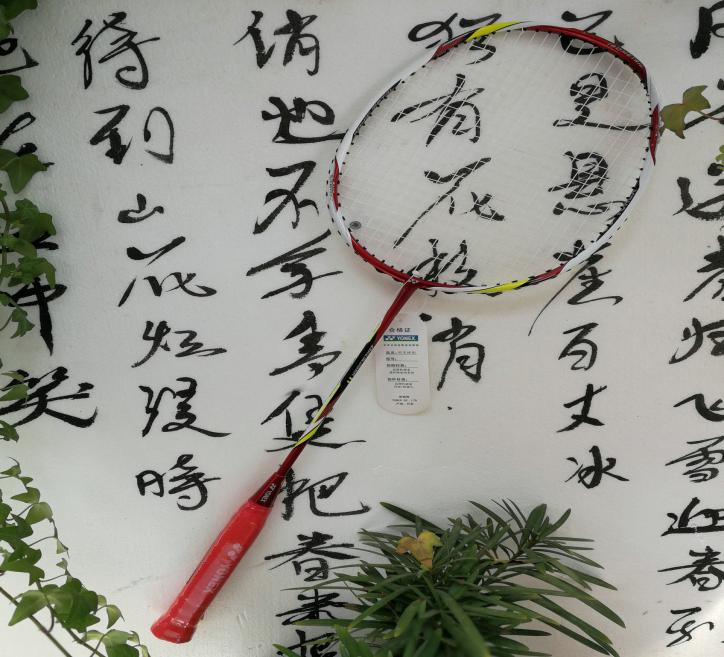 送春归飞雪迎春到
已是悬崖百丈冰
犹有花枝俏
俏也不争春只把春来报
待到山花烂漫時
中笑
合格证
YONEX
YONEX
YONEX